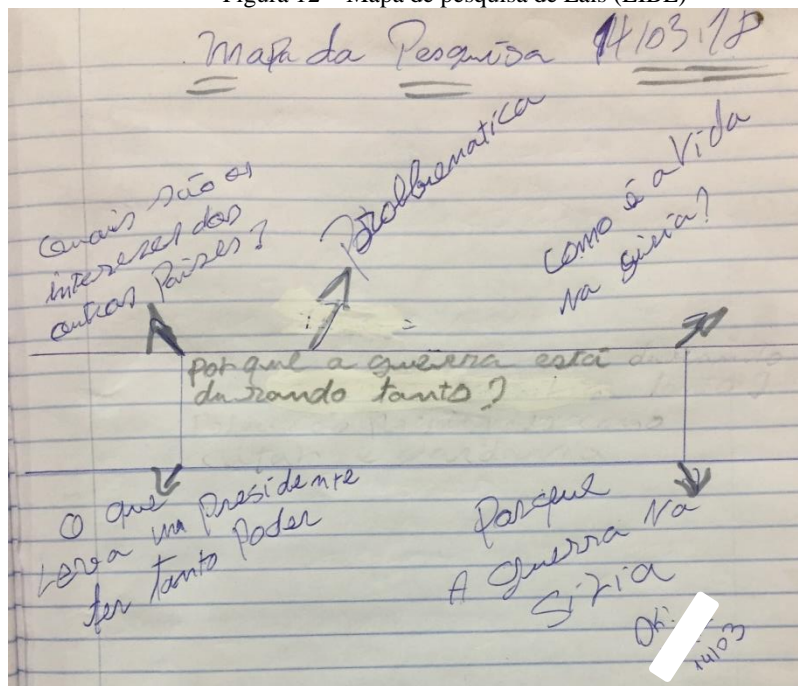 Figura 12 – Mapa de pesquisa de Laís (EIBE)
Mapa da Pesquisa 14/03/18
Quais são os
interezes dos
outros Países?
Problematica
Como é a Vida
na Siria?
porque a guerra está
durando tanto?
O que
Leva um Presidente
ter tanto Poder
Porque
A guerra na
Siria
OK!
14/03